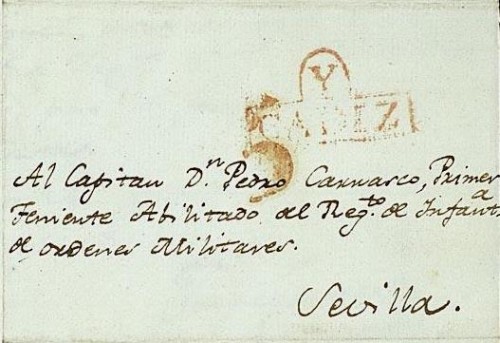 Y
CADIZ
Al Capitan D.n Pedro Carrasco, Primer
Teniente Abilitado del Reg.to de Infant.a
de ordenes Militares.
Sevilla.